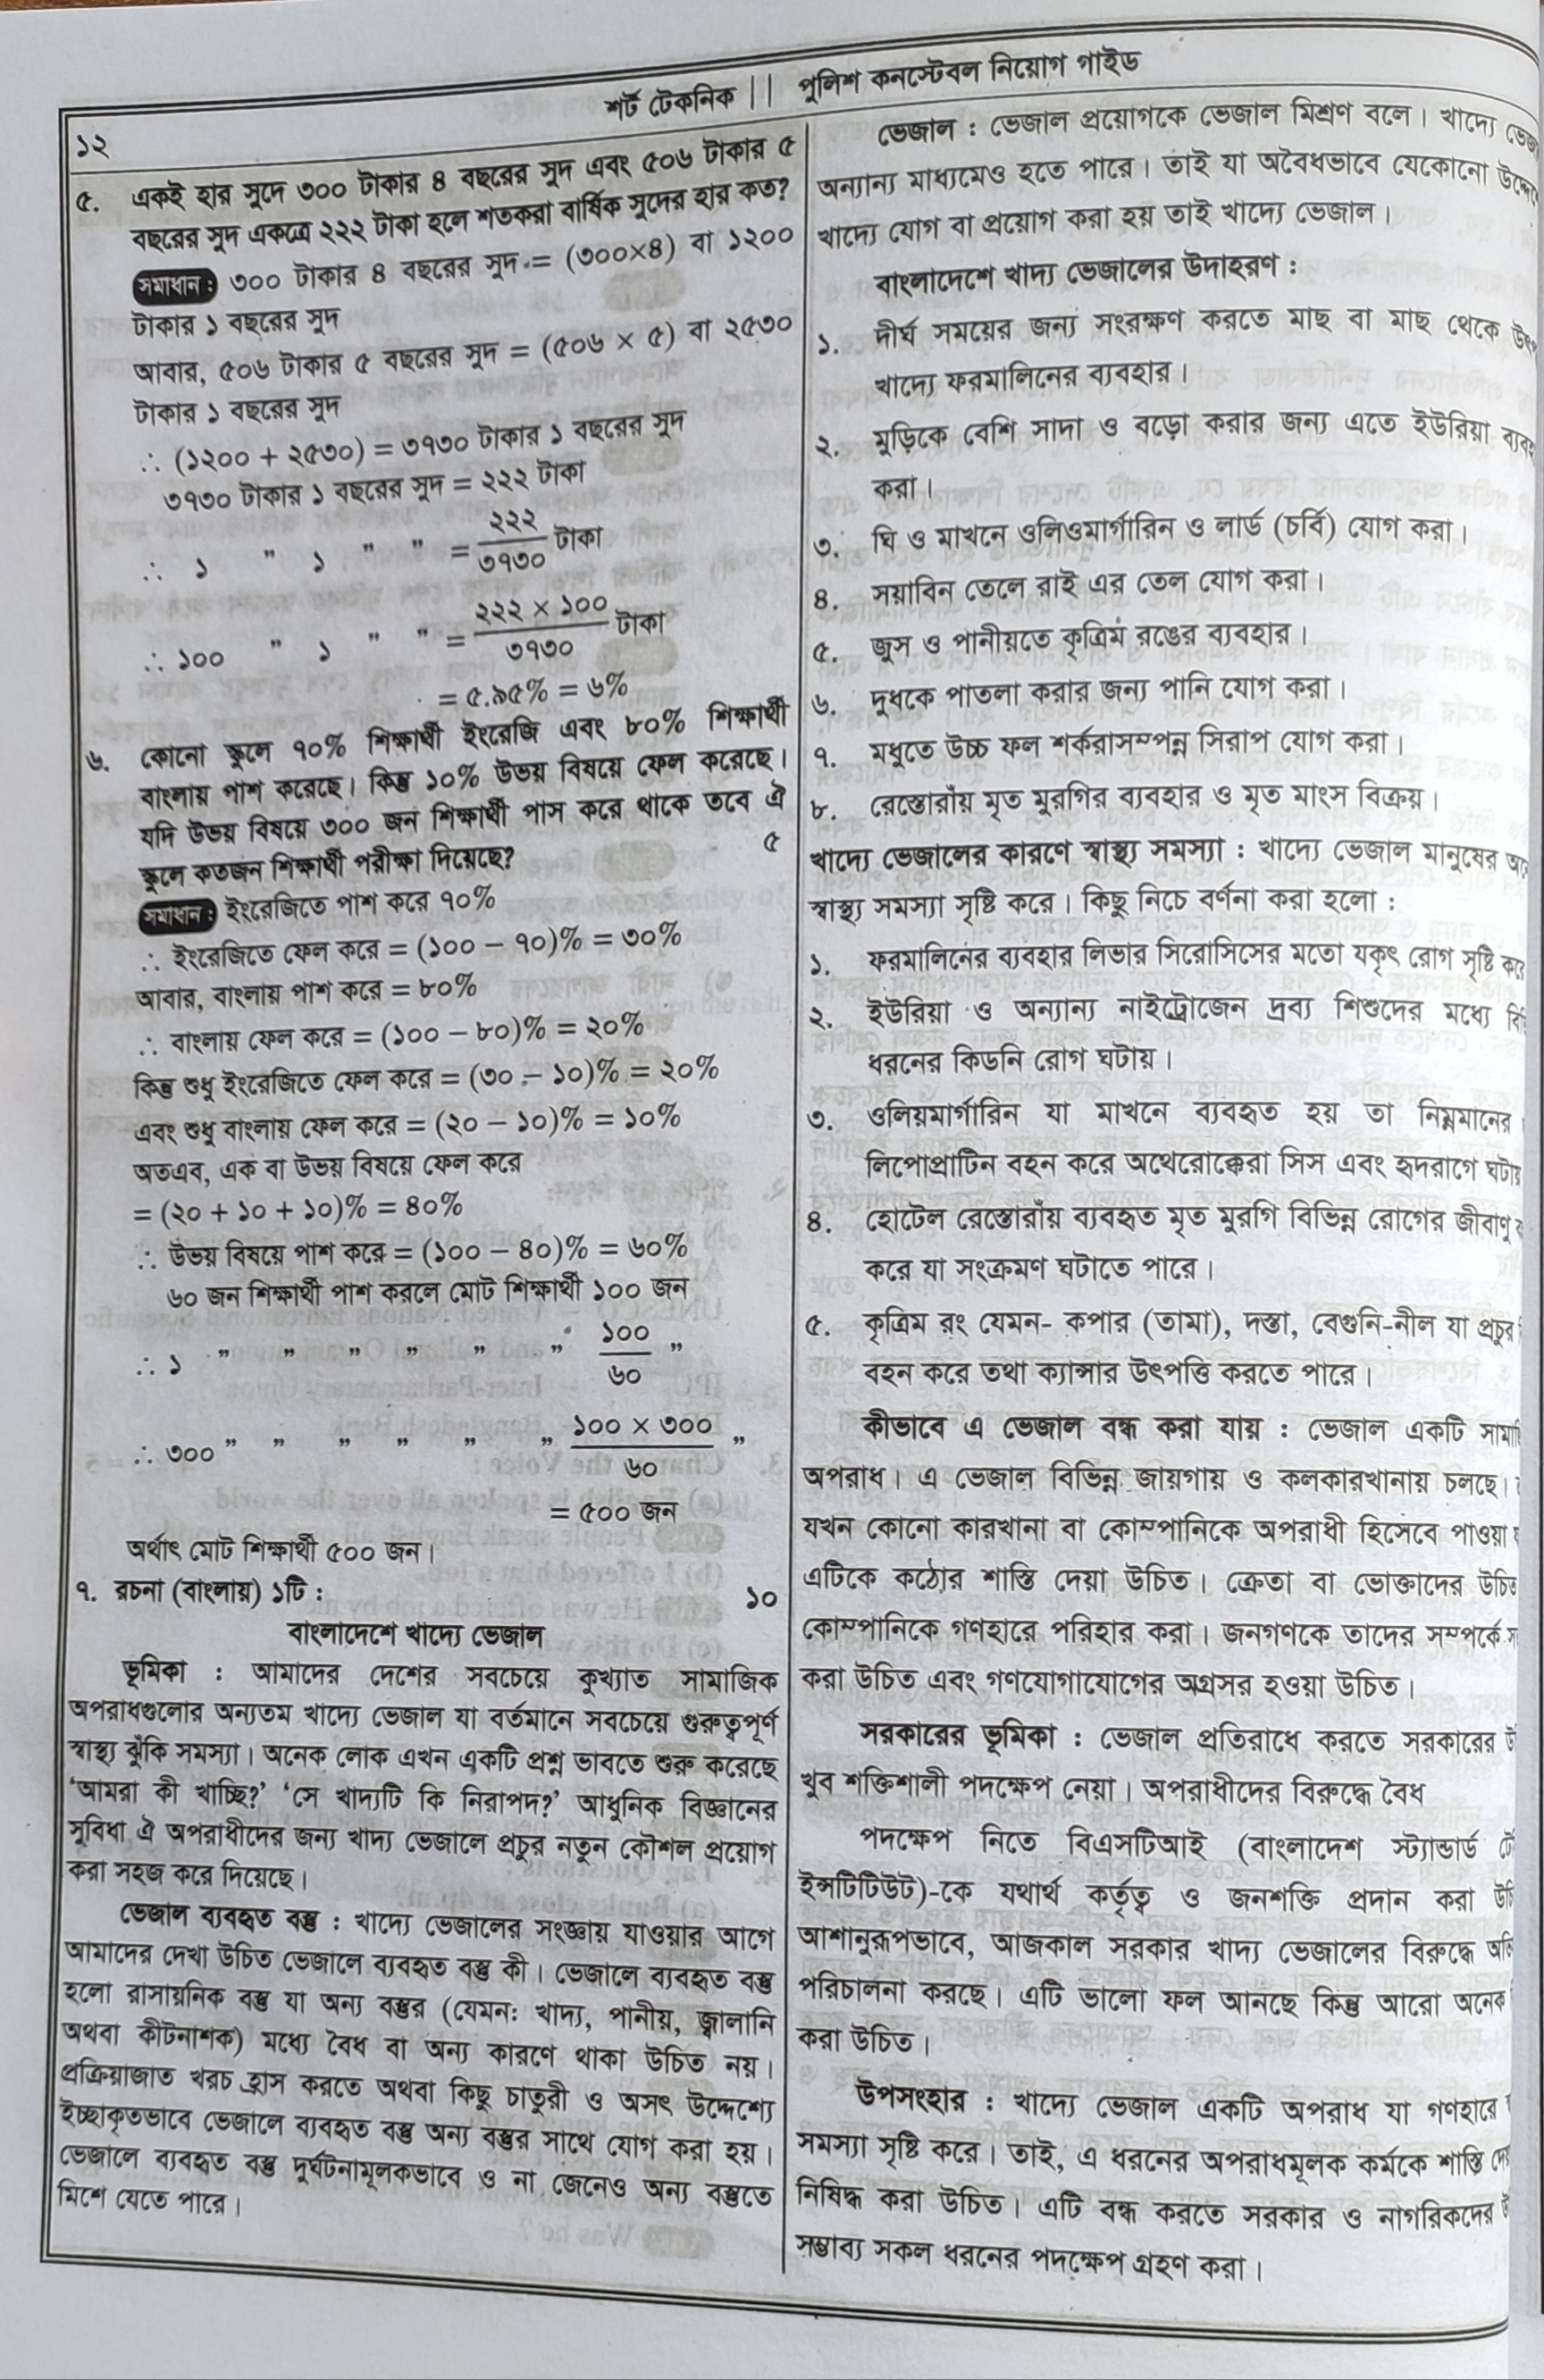 শর্ট টেকনিক || পুলিশ কনস্টেবল নিয়োগ গাইড
১২
৫. একই হার সুদে ৩০০ টাকার ৪ বছরের সুদ এবং ৫০৬ টাকার ৫
বছরের সুদ একত্রে ২২২ টাকা হলে শতকরা বার্ষিক সুদের হার কত?
সমাধান : ৩০০ টাকার ৪ বছরের সুদ = (৩০০×৪) বা ১২০০
টাকার ১ বছরের সুদ
আবার, ৫০৬ টাকার ৫ বছরের সুদ = (৫০৬ × ৫) বা ২৫৩০
টাকার ১ বছরের সুদ
∴ (১২০০ + ২৫৩০) = ৩৭৩০ টাকার ১ বছরের সুদ
৩৭৩০ টাকার ১ বছরের সুদ = ২২২ টাকা
∴ ১ " ১ " " = ২২২/৩৭৩০ টাকা
∴ ১০০ " ১ " " = ২২২ × ১০০/৩৭৩০ টাকা
= ৫.৯৫% = ৬%
৬. কোনো স্কুলে ৭০% শিক্ষার্থী ইংরেজি এবং ৮০% শিক্ষার্থী
বাংলায় পাশ করেছে। কিন্তু ১০% উভয় বিষয়ে ফেল করেছে।
যদি উভয় বিষয়ে ৩০০ জন শিক্ষার্থী পাস করে থাকে তবে ঐ
স্কুলে কতজন শিক্ষার্থী পরীক্ষা দিয়েছে? ৫
সমাধান : ইংরেজিতে পাশ করে ৭০%
∴ ইংরেজিতে ফেল করে = (১০০ – ৭০)% = ৩০%
আবার, বাংলায় পাশ করে = ৮০%
∴ বাংলায় ফেল করে = (১০০ – ৮০)% = ২০%
কিন্তু শুধু ইংরেজিতে ফেল করে = (৩০ – ১০)% = ২০%
এবং শুধু বাংলায় ফেল করে = (২০ – ১০)% = ১০%
অতএব, এক বা উভয় বিষয়ে ফেল করে
= (২০ + ১০ + ১০)% = ৪০%
∴ উভয় বিষয়ে পাশ করে = (১০০ – ৪০)% = ৬০%
৬০ জন শিক্ষার্থী পাশ করলে মোট শিক্ষার্থী ১০০ জন
∴ ১ " " " " " " ১০০/৬০ "
∴ ৩০০ " " " " " " ১০০ × ৩০০/৬০ "
= ৫০০ জন
অর্থাৎ মোট শিক্ষার্থী ৫০০ জন।
৭. রচনা (বাংলায়) ১টি : ১০
বাংলাদেশে খাদ্যে ভেজাল
ভূমিকা : আমাদের দেশের সবচেয়ে কুখ্যাত সামাজিক
অপরাধগুলোর অন্যতম খাদ্যে ভেজাল যা বর্তমানে সবচেয়ে গুরুত্বপূর্ণ
স্বাস্থ্য ঝুঁকি সমস্যা। অনেক লোক এখন একটি প্রশ্ন ভাবতে শুরু করেছে
‘আমরা কী খাচ্ছি?’ ‘সে খাদ্যটি কি নিরাপদ?’ আধুনিক বিজ্ঞানের
সুবিধা ঐ অপরাধীদের জন্য খাদ্য ভেজালে প্রচুর নতুন কৌশল প্রয়োগ
করা সহজ করে দিয়েছে।
ভেজাল ব্যবহৃত বস্তু : খাদ্যে ভেজালের সংজ্ঞায় যাওয়ার আগে
আমাদের দেখা উচিত ভেজালে ব্যবহৃত বস্তু কী। ভেজালে ব্যবহৃত বস্তু
হলো রাসায়নিক বস্তু যা অন্য বস্তুর (যেমন: খাদ্য, পানীয়, জ্বালানি
অথবা কীটনাশক) মধ্যে বৈধ বা অন্য কারণে থাকা উচিত নয়।
প্রক্রিয়াজাত খরচ হ্রাস করতে অথবা কিছু চাতুরী ও অসৎ উদ্দেশ্যে
ইচ্ছাকৃতভাবে ভেজালে ব্যবহৃত বস্তু অন্য বস্তুর সাথে যোগ করা হয়।
ভেজালে ব্যবহৃত বস্তু দুর্ঘটনামূলকভাবে ও না জেনেও অন্য বস্তুতে
মিশে যেতে পারে।
ভেজাল : ভেজাল প্রয়োগকে ভেজাল মিশ্রণ বলে। খাদ্যে
অন্যান্য মাধ্যমেও হতে পারে। তাই যা অবৈধভাবে যেকোনো
খাদ্যে যোগ বা প্রয়োগ করা হয় তাই খাদ্যে ভেজাল।
বাংলাদেশে খাদ্য ভেজালের উদাহরণ :
১. দীর্ঘ সময়ের জন্য সংরক্ষণ করতে মাছ বা মাছ থেকে
খাদ্যে ফরমালিনের ব্যবহার।
২. মুড়িকে বেশি সাদা ও বড়ো করার জন্য এতে ইউরিয়া
করা।
৩. ঘি ও মাখনে ওলিওমার্গারিন ও লার্ড (চর্বি) যোগ করা।
৪. সয়াবিন তেলে রাই এর তেল যোগ করা।
৫. জুস ও পানীয়তে কৃত্রিম রঙের ব্যবহার।
৬. দুধকে পাতলা করার জন্য পানি যোগ করা।
৭. মধুতে উচ্চ ফল শর্করাসম্পন্ন সিরাপ যোগ করা।
৮. রেস্তোরাঁয় মৃত মুরগির ব্যবহার ও মৃত মাংস বিক্রয়।
খাদ্যে ভেজালের কারণে স্বাস্থ্য সমস্যা : খাদ্যে ভেজাল মানুষের
স্বাস্থ্য সমস্যা সৃষ্টি করে। কিছু নিচে বর্ণনা করা হলো :
১. ফরমালিনের ব্যবহার লিভার সিরোসিসের মতো যকৃৎ রোগ সৃষ্টি করে
২. ইউরিয়া ও অন্যান্য নাইট্রোজেন দ্রব্য শিশুদের মধ্যে
ধরনের কিডনি রোগ ঘটায়।
৩. ওলিয়মার্গারিন যা মাখনে ব্যবহৃত হয় তা নিম্নমানের
লিপোপ্রাটিন বহন করে অথেরোক্কেরা সিস এবং হৃদরাগে ঘটায়
৪. হোটেল রেস্তোরাঁয় ব্যবহৃত মৃত মুরগি বিভিন্ন রোগের জীবাণু
করে যা সংক্রমণ ঘটাতে পারে।
৫. কৃত্রিম রং যেমন- কপার (তামা), দস্তা, বেগুনি-নীল যা প্রচুর
বহন করে তথা ক্যান্সার উৎপত্তি করতে পারে।
কীভাবে এ ভেজাল বন্ধ করা যায় : ভেজাল একটি
অপরাধ। এ ভেজাল বিভিন্ন জায়গায় ও কলকারখানায় চলছে।
যখন কোনো কারখানা বা কোম্পানিকে অপরাধী হিসেবে পাওয়া
এটিকে কঠোর শাস্তি দেয়া উচিত। ক্রেতা বা ভোক্তাদের উচিত
কোম্পানিকে গণহারে পরিহার করা। জনগণকে তাদের সম্পর্কে
করা উচিত এবং গণযোগাযোগের অগ্রসর হওয়া উচিত।
সরকারের ভূমিকা : ভেজাল প্রতিরাধে করতে সরকারের
খুব শক্তিশালী পদক্ষেপ নেয়া। অপরাধীদের বিরুদ্ধে বৈধ
পদক্ষেপ নিতে বিএসটিআই (বাংলাদেশ স্ট্যান্ডার্ড
ইন্সটিটিউট)-কে যথার্থ কর্তৃত্ব ও জনশক্তি প্রদান করা
আশানুরূপভাবে, আজকাল সরকার খাদ্য ভেজালের বিরুদ্ধে
পরিচালনা করছে। এটি ভালো ফল আনছে কিন্তু আরো অনেক
করা উচিত।
উপসংহার : খাদ্যে ভেজাল একটি অপরাধ যা গণহারে
সমস্যা সৃষ্টি করে। তাই, এ ধরনের অপরাধমূলক কর্মকে শাস্তি
নিষিদ্ধ করা উচিত। এটি বন্ধ করতে সরকার ও নাগরিকদের
সম্ভাব্য সকল ধরনের পদক্ষেপ গ্রহণ করা।